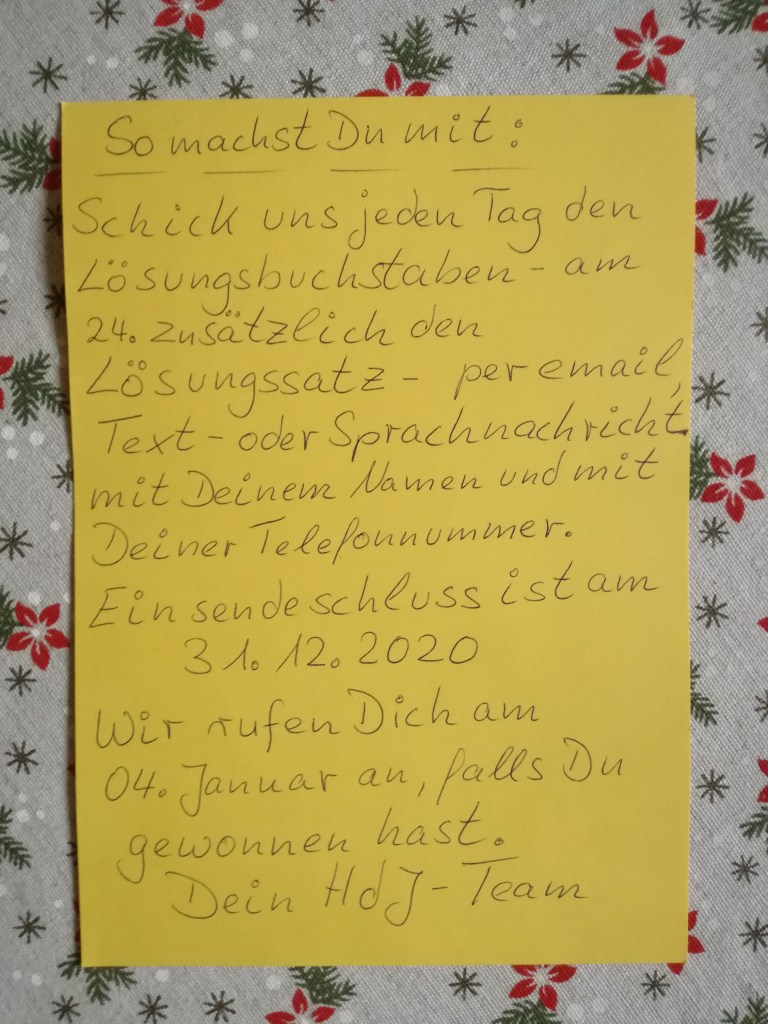 So machst Du mit:
Schick uns jeden Tag den
Lösungsbuchstaben - am
24. zusätzlich den
Lösungssatz - per email,
Text - oder Sprachnachricht
mit Deinem Namen und mit
Deiner Telefonnummer.
Einsendeschluss ist am
31. 12. 2020
Wir rufen Dich am
04. Januar an, falls Du
gewonnen hast.
Dein HdJ - Team